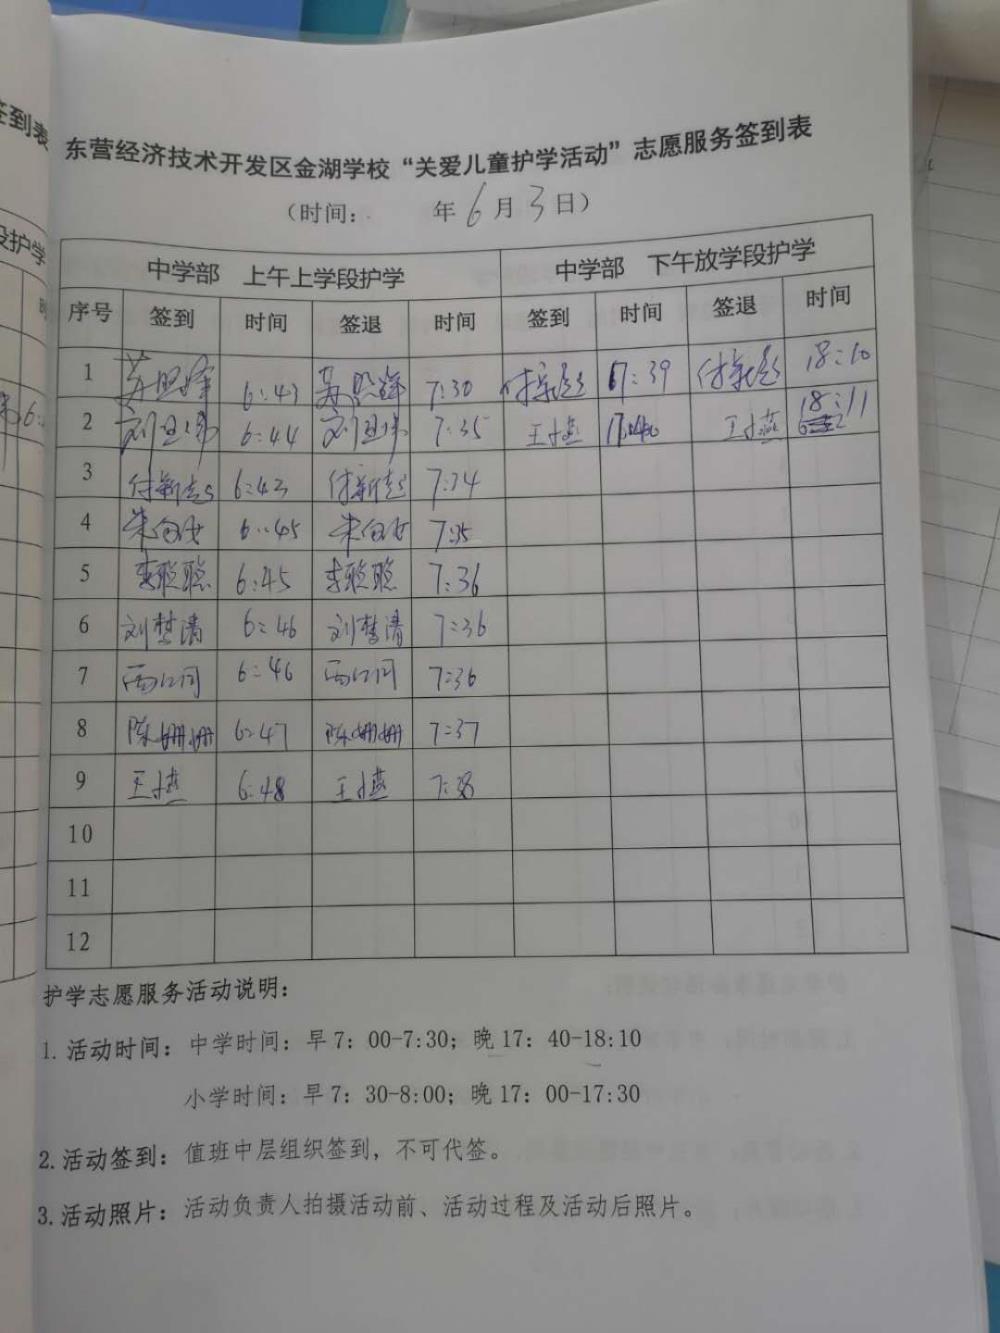 签到表
段护学
东营经济技术开发区金湖学校“关爱儿童护学活动”志愿服务签到表
（时间： 年6月3日）
中学部 上午上学段护学 中学部 下午放学段护学
序号 签到 时间 签退 时间 签到 时间 签退 时间
1 6:43 7:30 付新超 17:39 付新超 18:10
2 6:44 7:35 王小燕 王小燕 18:11
3 付新超 6:43 付新超 7:34
4 6:45 7:35
5 李聪聪 6:45 李聪聪 7:36
6 刘梦清 6:46 刘梦清 7:36
7 6:46 7:36
8 陈姗姗 6:47 陈姗姗 7:37
9 王小燕 6:48 王小燕 7:38
10
11
12
护学志愿服务活动说明：
1. 活动时间：中学时间：早7：00-7:30；晚17：40-18:10
小学时间：早7：30-8:00；晚17：00-17:30
2. 活动签到：值班中层组织签到，不可代签。
3. 活动照片：活动负责人拍摄活动前、活动过程及活动后照片。